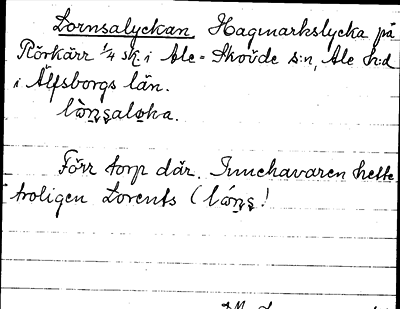 Lornsalyckan Hagmarkslycka på
Rörkärr 1/4 sk. i Ale-Skövde s:n, Ale h:d
i Älfsborgs län.
Förr torp där. Innehavaren hette
troligen Lorents (